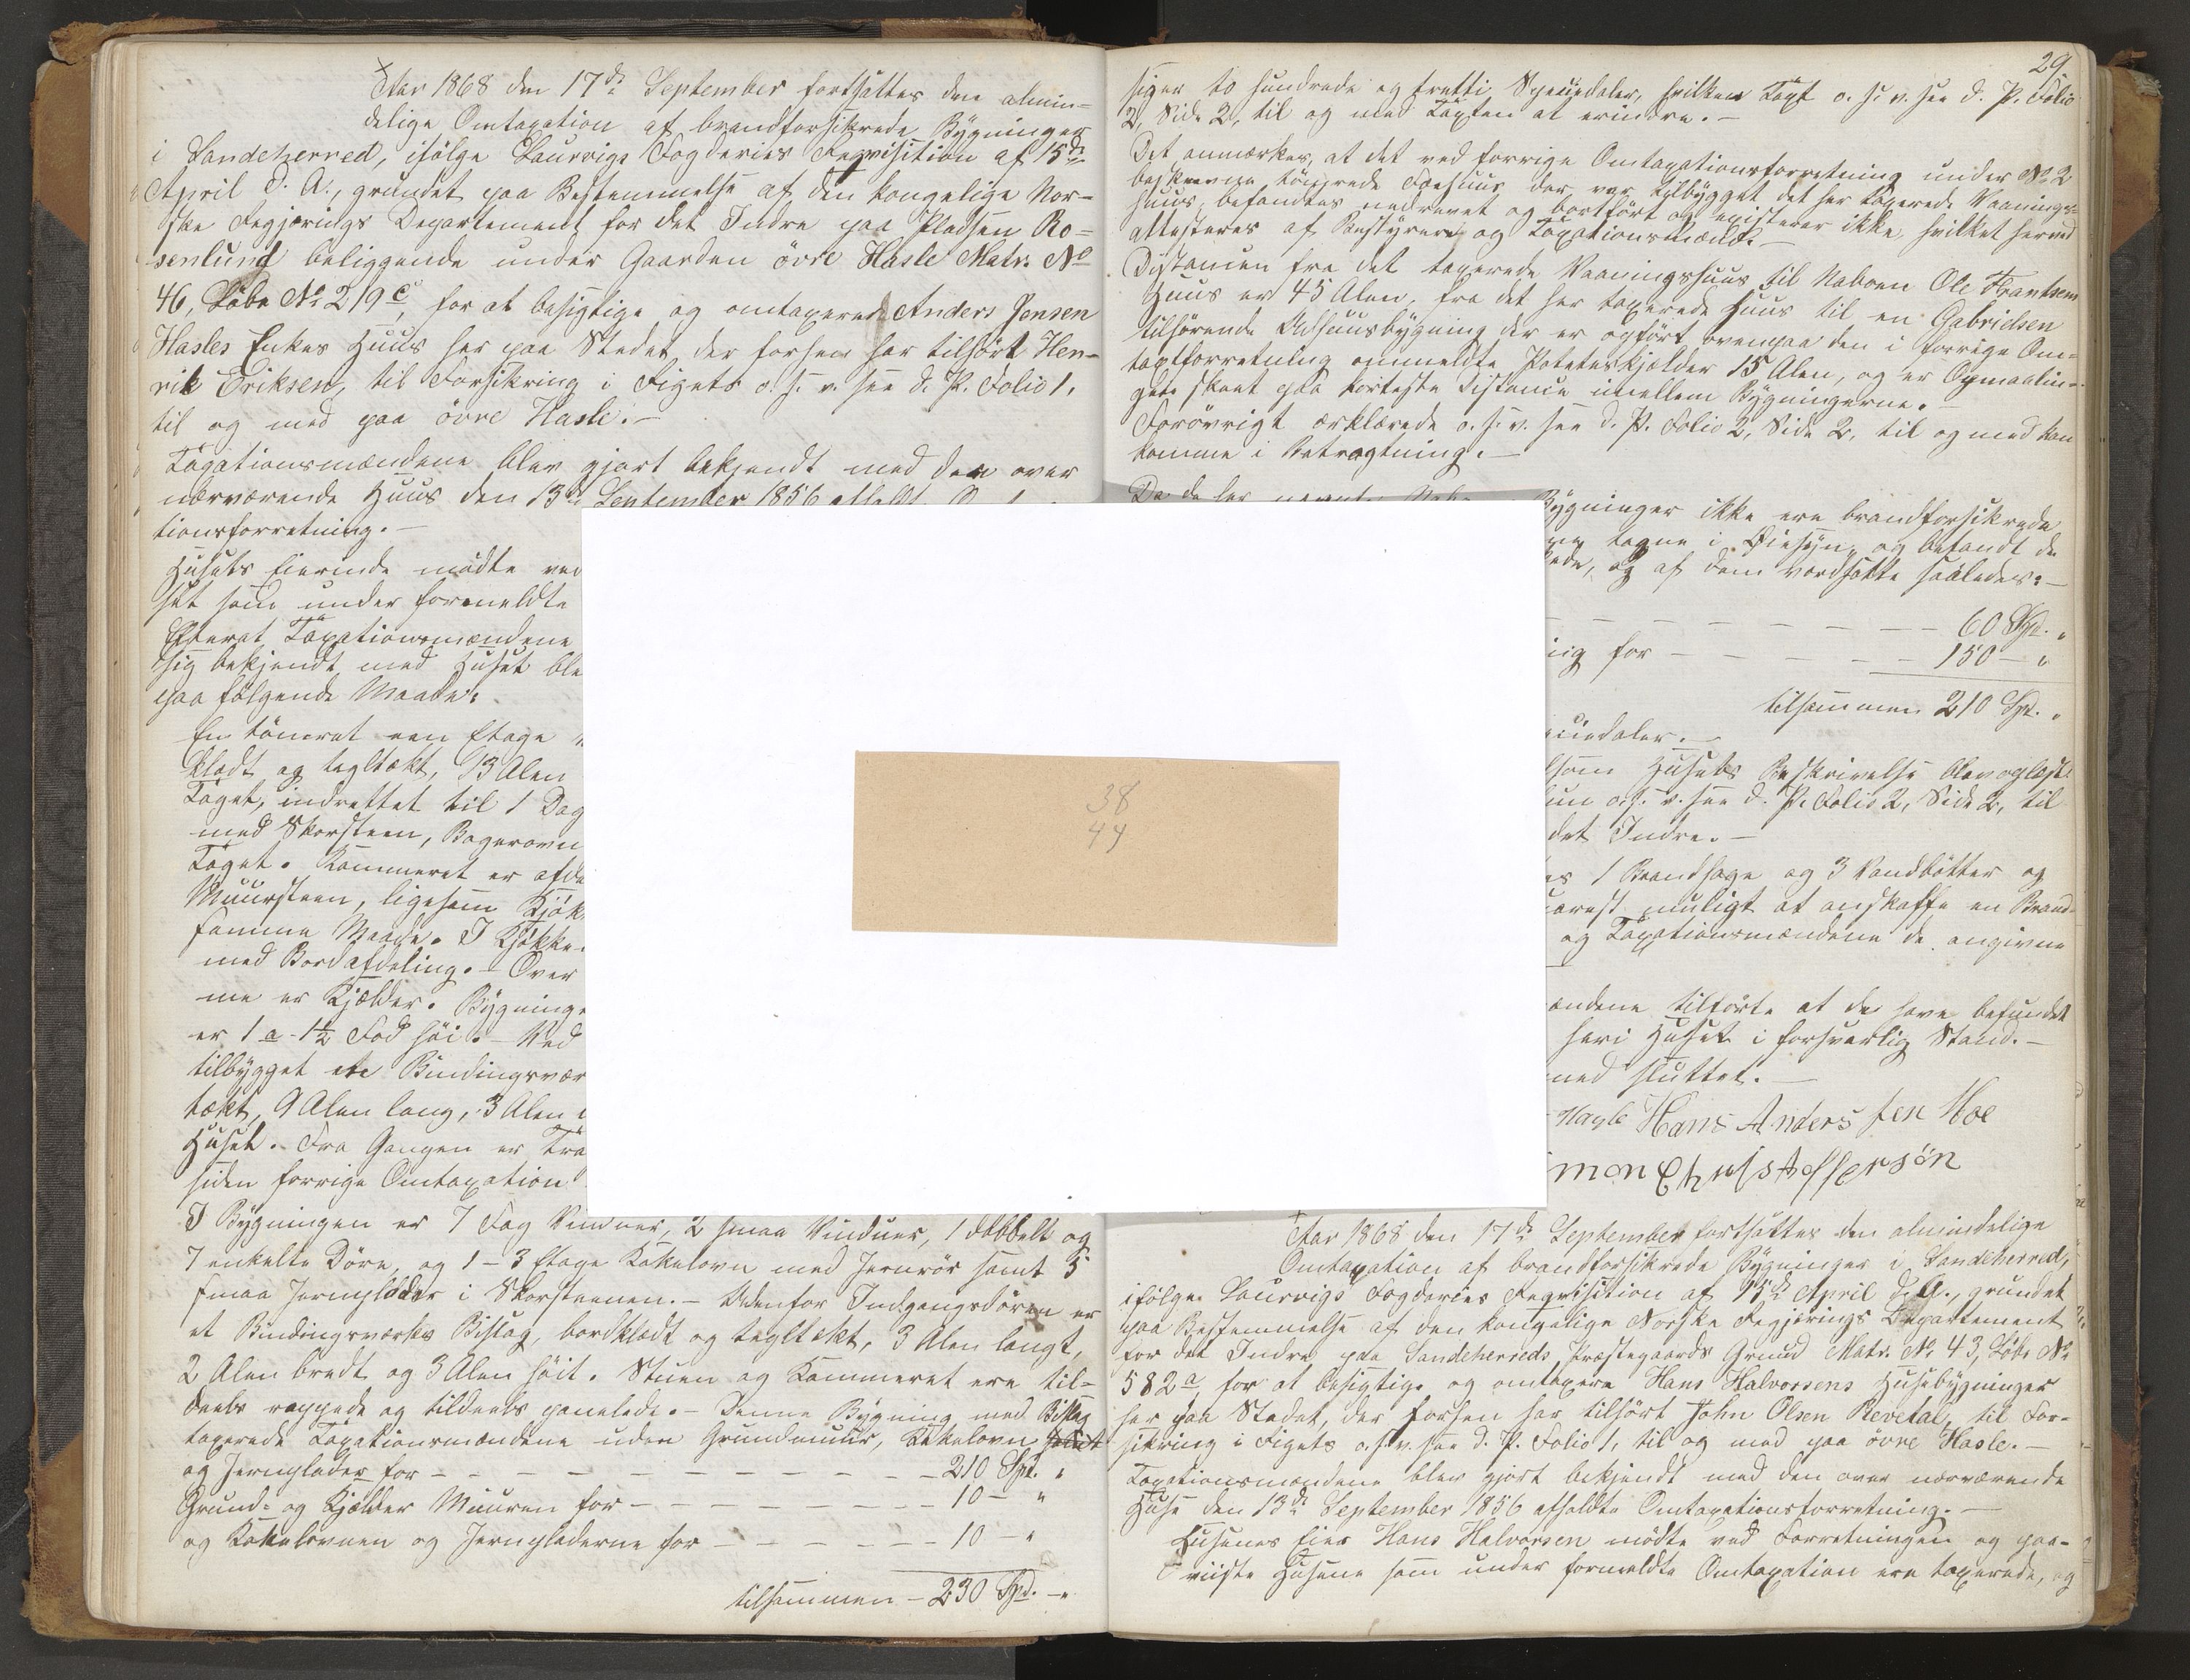 Aar 1868 den 17de September fortsattes den almin-
delige Omtaxation af brandforsikrede Bygninger
i Sandeherred, ifölge Laurvigs Fogderies Reqvisition af 15de
April d. A., grundet paa Bestemmelse af den kongelige Nor-
ske Regjerings Departement for det Indre paa Pladsen Ro-
senlund beliggende under Gaarden övre Hasle Matr. No
46, Löbe No 219c, for at besigtige og omtaxere Anders Jensen
Hasles Enkes Huus her paa Stedet, der forhen har tilhört Hen-
rik Eriksen, til Forsikring i Rigets o. s. v. see d. P. Folio 1,
til og med paa övre Hasle.-
Taxationsmændene blev gjort bekjendt med den over
nærværende Huus den 13de September 1856 afholdte
tionsforretning.-
Husets Eierinde mödte ved
set som under formeldte
Efterat Taxationsmændene
sig bekjendt med Huset ble
paa fölgende Maade:
En tömret een Etage
klædt og tegltækt, 13 Alen
Taget, indrettet til 1 Dag
med Skorsteen, Bagerovn
Taget. Kammeret er afde
Muursteen, ligesom Kjök
samme Maade. I Kjökke
med Bordafdeling.- Over
me er Kjælder. Bygninge
er 1 a 1½ Fod höi.- Ved
tilbygget et Bindingsvær
tækt, 9 Alen lang, 3 Alen
Huset. Fra Gangen er Tra
siden forrige Omtaxation
I Bygningen er 7 Fag Vinduer, 2 smaa Vinduer, 1 dobbelt og
7 enkelte Döre, og 1-3 Etage Kakelovn med Jernrör samt 5
smaa Jernplader i Skorstenen.- Udenfor Indgangsdören er
et Bindingsværks Bislag, bordklædt og tegltækt, 3 Alen langt,
2 Alen bredt og 3 Alen höit. Stuen og Kammeret ere til-
deels rappede og tildeels panelede.- Denne Bygning med Bislag
taxerede Taxationsmændene uden Grundmuur, Kakelovn samt
og Jernplader for - - - 210 Spd. "
Grund- og Kjælder Muuren for - - - 10 - "
og Kakelovnen og Jernpladerne for - - - 10 - "
tilsammen - 230 Spd. - "
29
siger to hundrede og tretti Speciedaler, hvilken Taxt o. s. v. see d. P. Folio
2, Side 2, til og med Taxten at erindre.-
Det anmærkes, at det ved forrige Omtaxationsforretning under No 2
beskrevne tömrede Fæhuus, der var tilbygget det her taxerede Vaanings-
huus, befandtes nedrevet og bortfört og existerer ikke, hvilket herved
attesteres af Bestyrer og Taxationsmænd.-
Distancen fra det taxerede Vaaningshuus til Naboen Ole Frantsens
Huus er 45 Alen, fra det her taxerede Huus til en Gabrielsen
tilhörende Udhuusbygning der er opfört ovenpaa den i forrige Om-
taxtforretning anmeldte Poteteskjælder 15 Alen, og er Opmaalin-
gen skeet paa korteste Distance imellem Bygningerne.-
Forövrigt erklærede o. s. v. see d. P. Folio 2, Side 2, til og med kan
komme i Betragtning.-
Da de her nævnte
Bygninger ikke ere brandforsikrede
tagne i Öiesyn, og befandt de
ede, og af dem værdsatte saaledes:-
- - - 60 Spd. "
ig for - - - 150 - "
tilsammen 210 Spd. "
eciedaler.-
lsom Husets Beskrivelse blev oplæst
o. s. v. see d. P. Folio 2, Side 2, til
det Indre.-
es 1 Brandhage og 3 Vandbötter og
arest muligt at anskaffe en Brand-
og Taxationsmændene de angivne
ændene tilförte at de have befundet
heri Huset i forsvarlig Stand.-
med sluttet.-
Hans Anders sen Moe
mon Christoffersön
Aar 1868 den 17de September fortsattes den almindelige
Omtaxation af brandforsikrede Bygninger i Sandeherred,
ifölge Laurvigs Fogderies Reqvisition af 15de April d. A., grundet
paa Bestemmelse af den kongelige Norske Regjerings Departement
for det Indre paa Sandeherreds Præstegaards Grund Matr. No 43, Löbe No
582a, for at besigtige og omtaxere Hans Halvorsens Husebygninger
her paa Stedet, der forhen har tilhört John Olsen Revetal, til For-
sikring i Rigets o. s. v. see d. P. Folio 1, til og med paa övre Hasle.-
Taxationsmændene blev gjort bekjendt med den over nærværende
Huse den 13de September 1856 afholdte Omtaxationsforretning.-
Husenes Eier Hans Halvorsen mödte ved Forretningen og paa-
viiste Husene som under formeldte Omtaxation ere taxerede, og
38
44